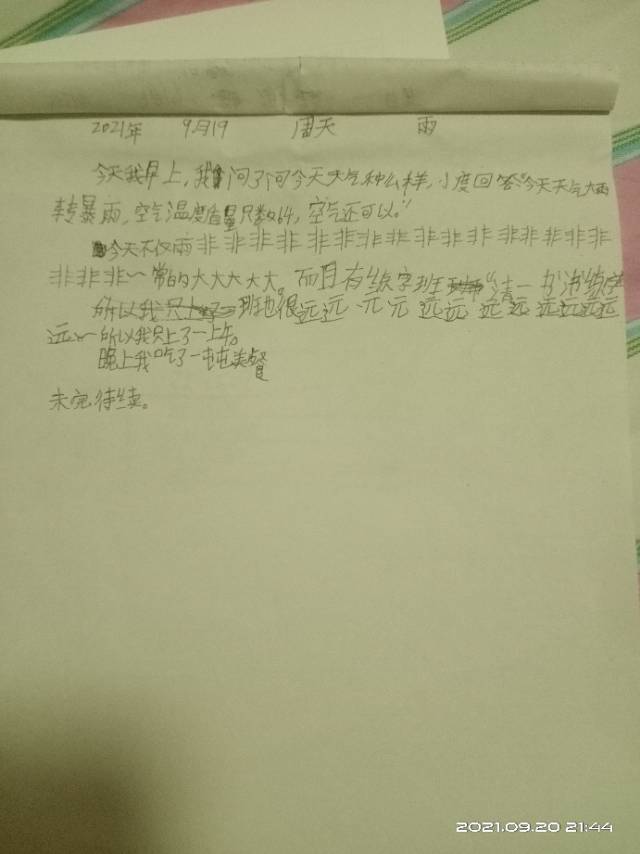 2021年 9月19 周天 雨
今天我早上,我问了问今天天气种么样,小度回答"今天天气大雨
转暴雨,空气温度质量尺数64,空气还可以。"
今天不仅雨非非非非非非非非非非非非非非非非
非非非~常的大大大大大。而且有练字班 "清一
所以我只上了 班也很远远 元元 远远 远远 远远远远
远~所以我只上了一上午。
晚上我吃了一吨美餐
未完待续。
2021.09.20 21:44